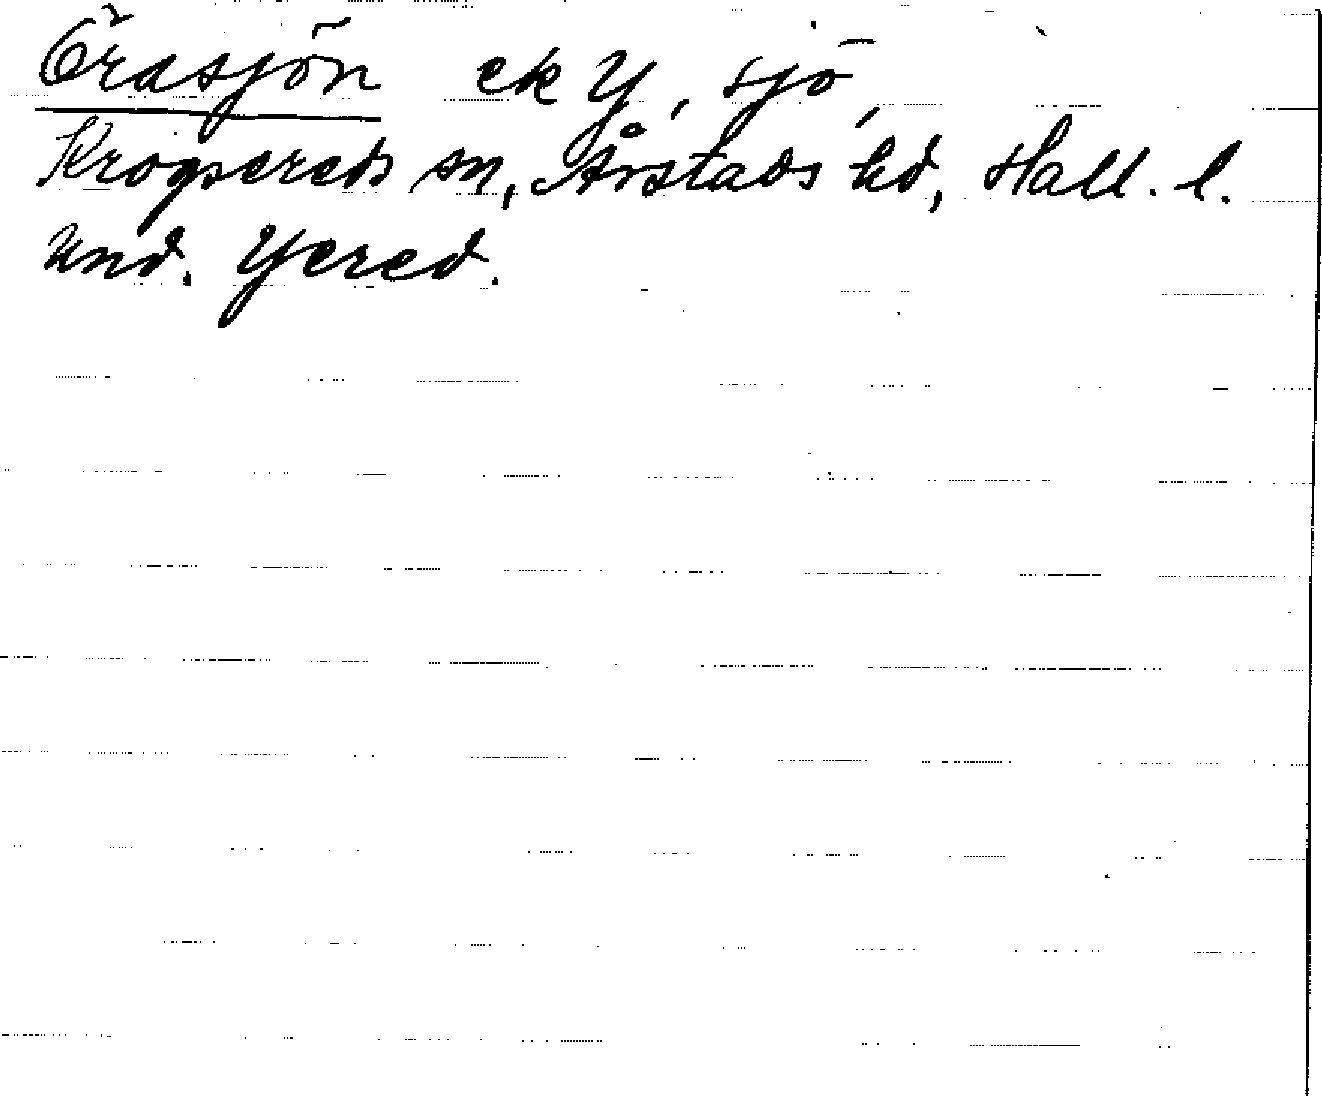 Örasjön ek Y, sjö,
Krogsereds sn, Årstads hd, Hall. l.
und. Yered.